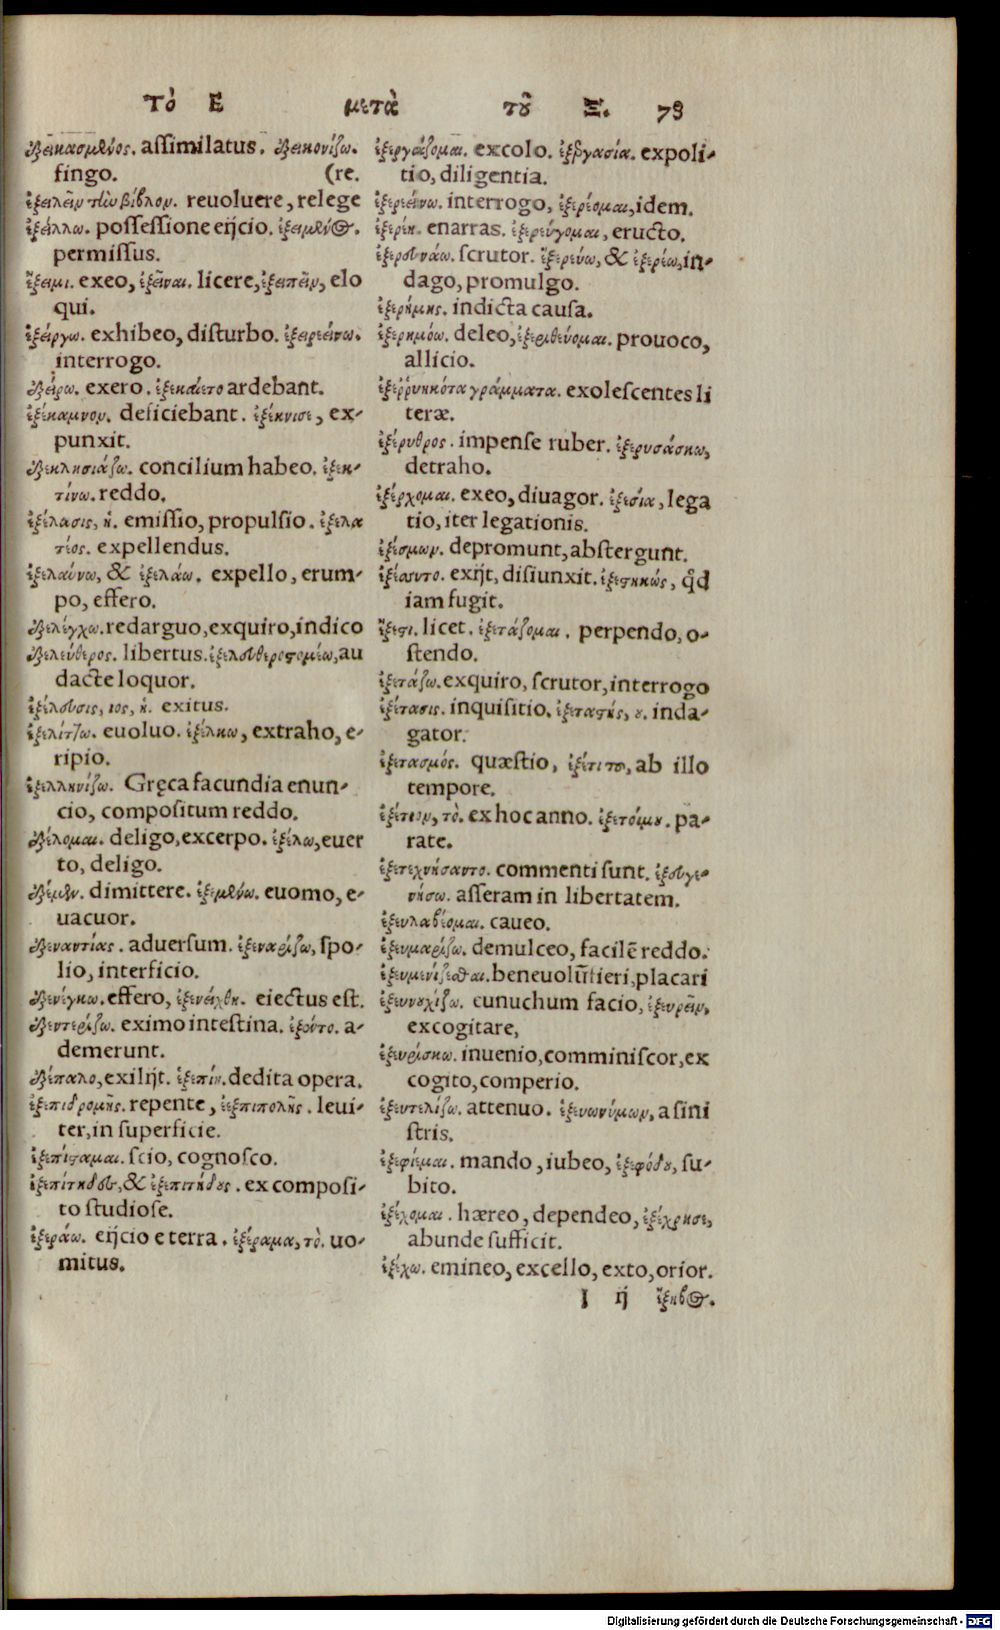 Τὸ Ε μετὰ τοῦ Ξ. 73
ἐξεικασμένος. assimilatus. ἐξεικονίζω.
fingo. (re.
ἐξειλεῖν τὴν βίβλον. reuoluere, relege
ἐξείλλω. possessione eijcio. ἐξειμένος.
permissus.
ἔξειμι. exeo, ἐξεῖναι. licere, ἐξειπεῖν, elo
qui.
ἐξείργω. exhibeo, disturbo. ἐξερεείνω.
interrogo.
ἐξείρω. exero. ἐξεκαίετο ardebant.
ἐξέκαμνον. deficiebant. ἐξέκνισε, ex-
punxit.
ἐξεκκλησιάζω. concilium habeo. ἐξεκ-
τίνω. reddo.
ἐξέλασις, ἡ. emissio, propulsio. ἐξελα
τέος. expellendus.
ἐξελαύνω, & ἐξελάω. expello, erum-
po, effero.
ἐξελέγχω. redarguo, exquiro, indico
ἐξελεύθερος. libertus. ἐξελευθεροστομέω, au
dacte loquor.
ἐξέλευσις, ιος, ἡ. exitus.
ἐξελίττω. euoluo. ἐξέλκω, extraho, e-
ripio.
ἐξελληνίζω. Gręca facundia enun-
cio, compositum reddo.
ἐξέλομαι. deligo, excerpo. ἐξέλω, euer
to, deligo.
ἐξέμεν. dimittere. ἐξεμένω. euomo, e-
uacuor.
ἐξεναντίας. aduersum. ἐξεναρίζω, spo-
lio, interficio.
ἐξενέγκω. effero, ἐξενείχθη. eiectus est.
ἐξεντερίζω. eximo intestina. ἐξέοντο. a-
demerunt.
ἐξέπαλο, exilijt. ἐξεπίη. dedita opera.
ἐξεπιδρομῆς. repente, ἐξεπιπολῆς. leui-
ter, in superficie.
ἐξεπίσταμαι. scio, cognosco.
ἐξεπίτηδες, & ἐξεπιτήδους. ex composi-
to studiose.
ἐξεράω. eijcio e terra. ἐξέραμα, τὸ. uo-
mitus.
ἐξεργάζομαι. excolo. ἐξεργασία. expoli-
tio, diligentia.
ἐξερεείνω. interrogo, ἐξερέομαι, idem.
ἐξερέῃ. enarras. ἐξερεύγομαι, eructo.
ἐξερευνάω. scrutor. ἐξερεύω, & ἐξερέω, in-
dago, promulgo.
ἐξερήμης. indicta causa.
ἐξερημόω. deleo, ἐξεριθεύομαι. prouoco,
allicio.
ἐξεῤῥυηκότα γράμματα. exolescentes li
teræ.
ἐξέρυθρος. impense ruber. ἐξερυσάσκω,
detraho.
ἐξέρχομαι. exeo, diuagor. ἐξεσία, lega
tio, iter legationis.
ἐξέσμων. depromunt, abstergunt.
ἐξέσσυτο. exijt, disiunxit. ἐξεστηκώς, qd̃
iam fugit.
ἔξεστι. licet. ἐξετάζομαι. perpendo, o-
stendo.
ἐξετάζω. exquiro, scrutor, interrogo
ἐξέτασις. inquisitio. ἐξεταστής, ου. inda-
gator.
ἐξετασμός. quæstio, ἐξέτι τοῦ, ab illo
tempore.
ἐξέτειον, τὸ. ex hoc anno. ἐξετοίμου. pa-
rate.
ἐξετεχνήσαντο. commenti sunt. ἐξευγε-
νήσω. asseram in libertatem.
ἐξευλαβέομαι. caueo.
ἐξευμαρίζω. demulceo, facilẽ reddo.
ἐξευμενίζεσθαι. beneuolũ fieri, placari
ἐξευνουχίζω. eunuchum facio, ἐξευρεῖν,
excogitare,
ἐξευρίσκω. inuenio, comminiscor, ex
cogito, comperio.
ἐξευτελίζω. attenuo. ἐξευωνύμων, a sini
stris.
ἐξεφίεμαι. mando, iubeo, ἐξεφόδου, su-
bito.
ἐξέχομαι. hæreo, dependeo, ἐξέχρησε,
abunde sufficit.
ἐξέχω. emineo, excello, exto, orior.
I ij ἔξηβος.
Digitalisierung gefördert durch die Deutsche Forschungsgemeinschaft - DFG